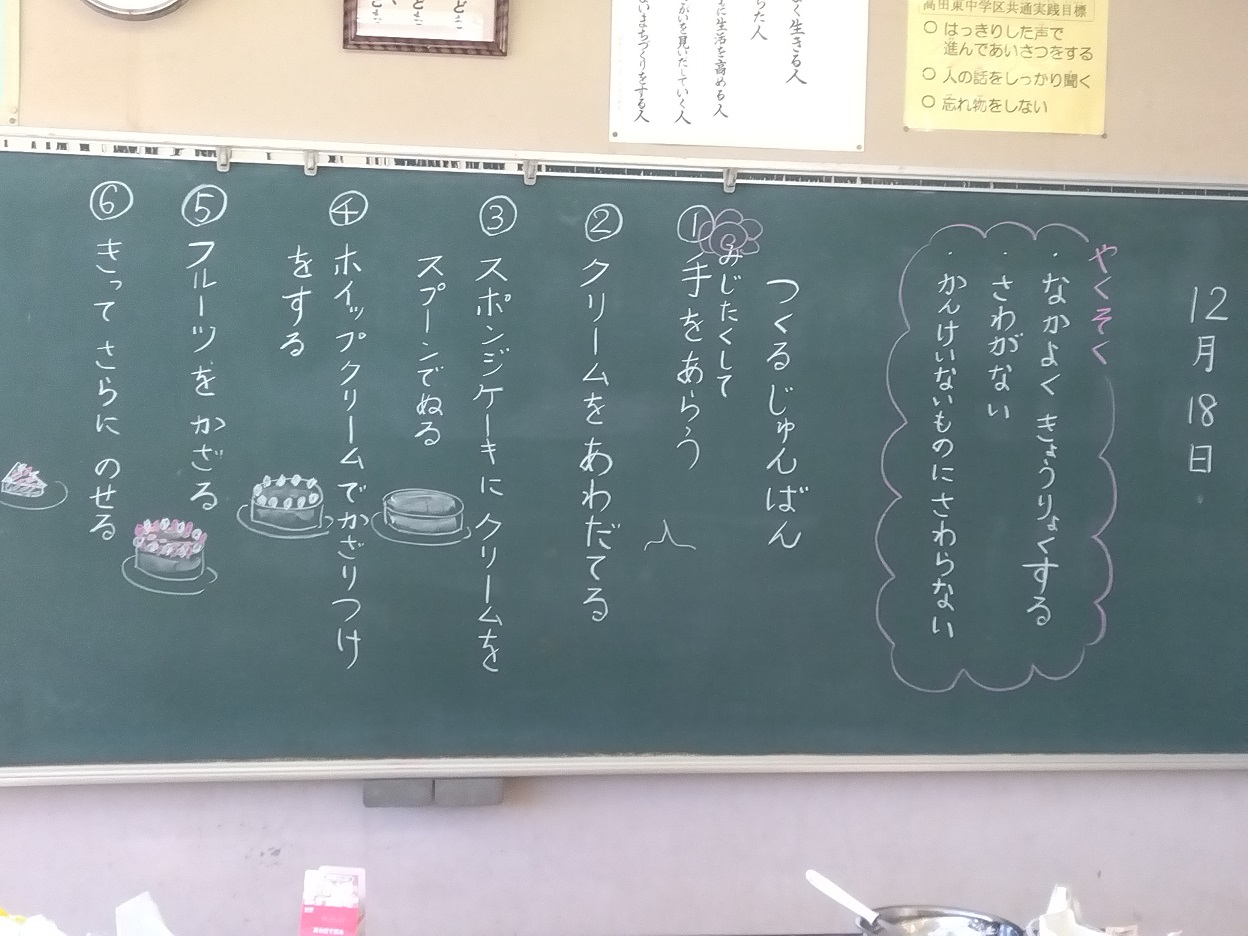 12月18日
やくそく
・なかよく きょうりょくする
・さわがない
・かんけいないものにさわらない
つくる じゅんばん
みじたくして
① 手をあらう
② クリームを あわだてる
③ スポンジケーキに クリームを
スプーンでぬる
④ ホイップクリームでかざりつけ
をする
⑤ フルーツを かざる
⑥ きって さらに のせる
高田東中学区共通実践目標
○ はっきりした声で
進んであいさつをする
○ 人の話をしっかり聞く
○ 忘れ物をしない
生きる人
に生活を高める人
がいを見いだしていく人
いまちづくりをする人